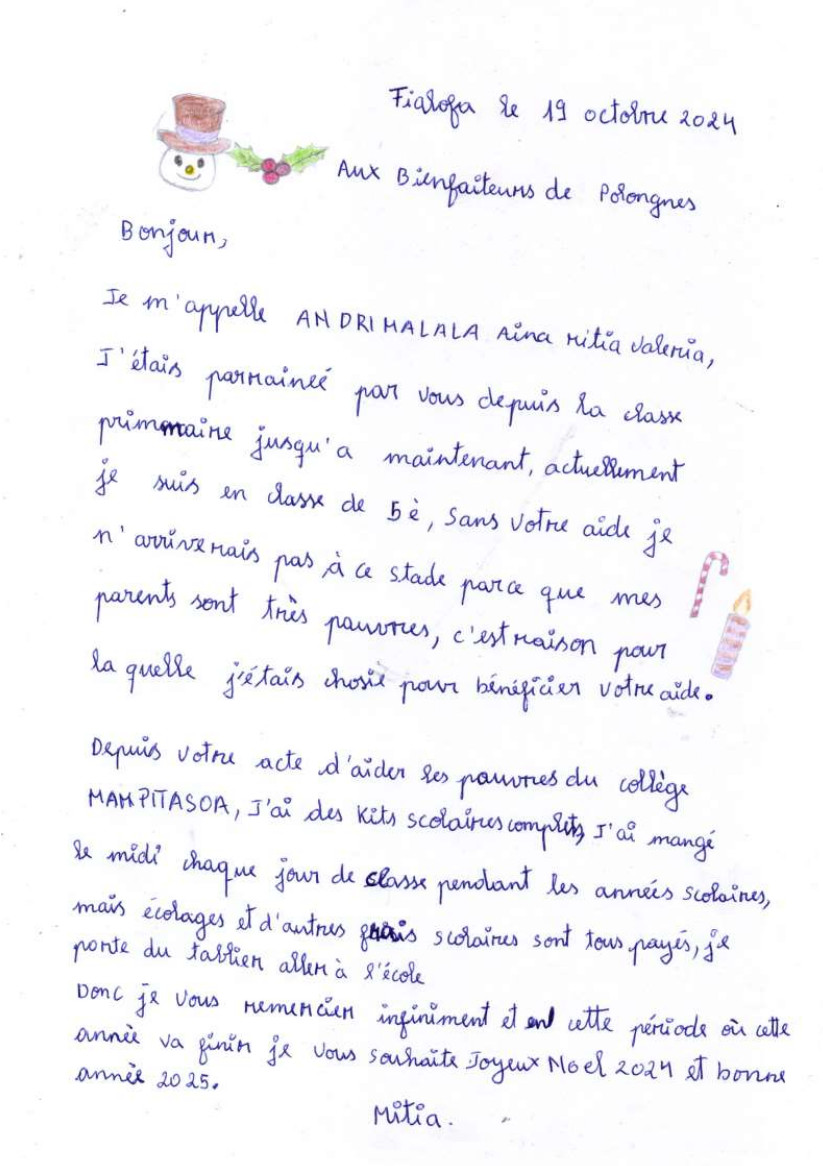 Fialofa le 19 octobre 2024
Aux Bienfaiteurs de Polongnes
Bonjour,
Je m'appelle ANDRIMALALA Aina Mitia Valeria,
J'étais parraineé par vous depuis la classe
primmaire jusqu'a maintenant, actuellement
je suis en classe de 5è, Sans votre aide je
n'arriverais pas à ce stade parce que mes
parents sont très pauvres, c'est raison pour
la quelle j'étais chosie pour bénéficier votre aide.
Depuis votre acte d'aider les pauvres du collège
MAMPITASOA, J'ai des Kits scolaires complets, J'ai mangé
le midi chaque jour de classe pendant les années scolaires,
mais écolages et d'autres frais scolaires sont tous payés, je
porte du tablier aller à l'école
Donc je vous remercier infiniment et en cette période où cette
année va finir je vous souhaite Joyeux Noel 2024 et bonne
année 2025.
Mitia.